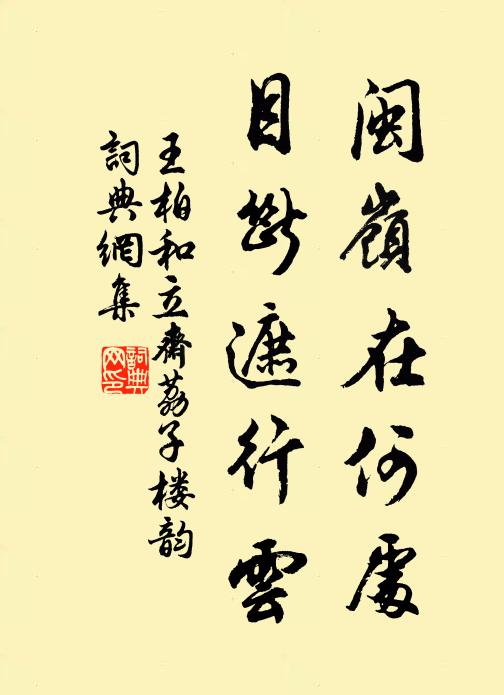 闽嶺在何處
目斷遮行雲
王柏和立齋荔子楼韵
詞典網集
詞典网印